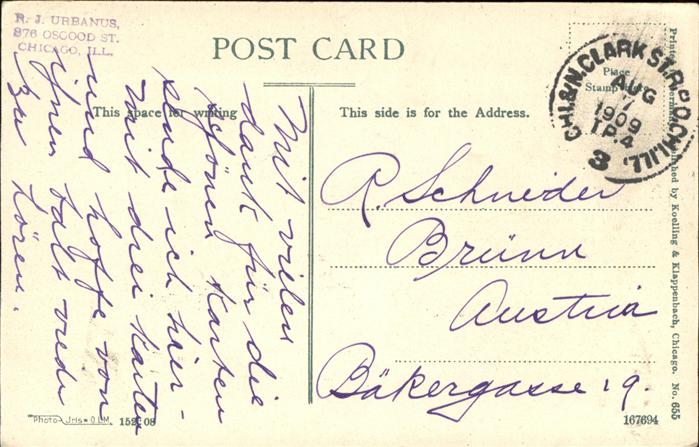 R. J. URBANUS,
876 OSGOOD ST.
CHICAGO, ILL.
POST CARD
This space for writing
This side is for the Address.
Place
Stamp here
CHI.&N.CLARK ST.R.P.O.CHI.ILL.
AUG
7
1909
TR.4
3
Mit vielen
dank für die
schönen Karten
sende ich hier-
mit drei Karten
und hoffe von
ihnen balt wieder
zu hören.
R. Schneider
Brünn
Austria
Bäkergasse 19.
Printed in Germany. Published by Koelling & Klappenbach, Chicago. No. 655
PHOTO-
152 08
167694